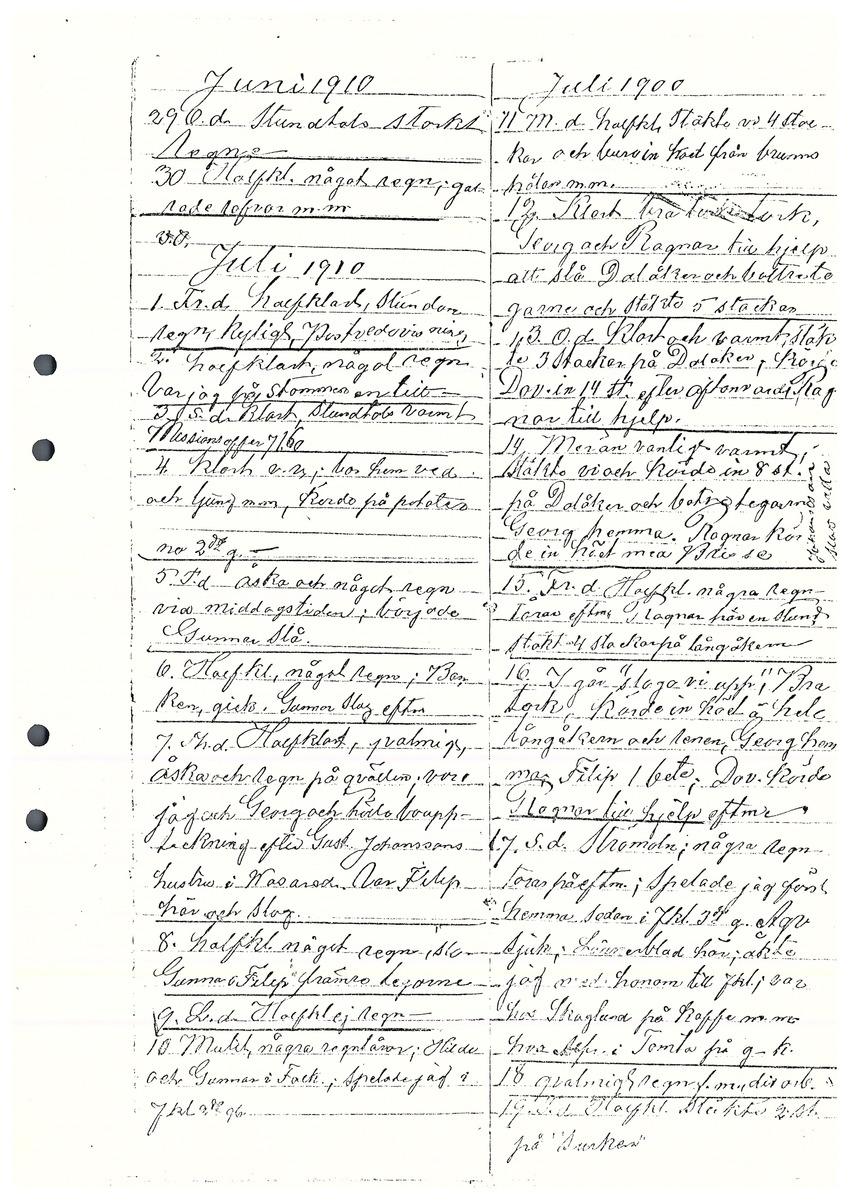 Juni 1910
29 O.d. Stundtals starkt
regn
30 Halfkl. något regn; gar-
rade refvor m.m
Juli 1910
1. Fr.d. halfklart, stundom
regn, kyligt,
2. halfklart, något regn
Var jag på stommen en titt
3. S.d. klart, stundtals varmt
Missionsoffer 71.60
4. klart v.v; bar hem ved
och ljung m.m, körde på potates
na 2dra g.
5. T.d åska och något regn
vid middagstiden; började
Gunnar slå.
6. Halfkl, något regn; Ban
ken, gick. Gunnar slog eftm
7. Th.d. Halfklart, qvalmigt,
åska och regn på qvällen; voro
jag och Georg och höllo boupp-
teckning efter Gust. Johanssons
hustru i Wasared. Var Filip
här och slog.
8. halfkl något regn, slo
Gunnar o Filip främre tegarne
9. L.d. Halfkl ej regn
10 Mulet, några regntårar; Hilda
och Gunnar i Fack.; spelade jag i
7kl 2dra g
Juli 1900
11 M.d halfkl, stäkte vi 4 stac-
kar och buro in höet från brunns
hålan m.m.
12. Klart bra tork,
Georg och Ragnar till hjelp
att slå Dalåker och
garne och stäkte 5 stackar
13. O.d. klart och varmt, stäk
te 3 stackar på Dalåker; körde
Dav. in 14 st. efter aftonvard, Rag
nar till hjelp.
14. Mer än vanligt varmt,
stäkte vi och körde in 8 st.
på Dalåker och tegarne
Georg hemma. Ragnar kör
de in höet med
15. Fr.d Halfkl. några regn-
tårar eftm; Ragnar här en stund
stäkt 4 stackar på långåkern
16. I går "sloge vi upp"; Bra
tork, körde in höet å hela
långåkern och renen, Georg hem
ma, Filip 1 bete; Dav. körde
Ragnar till hjelp eftm
17. S.d. Strömoln; några regn
tårar på eftm; spelade jag först
hemma sedan i 7kl 3dje g. Agv
sjuk; Lönnerblad här; åkte
jag med honom till 7kl; var
hos Skaglund på kaffe m.m
hos Alfr. i Tomta på g-k.
18 qvalmigt, regn f.m; div arb.
19. T.d Halfkl. stäkte 2 st.
på "Surken"